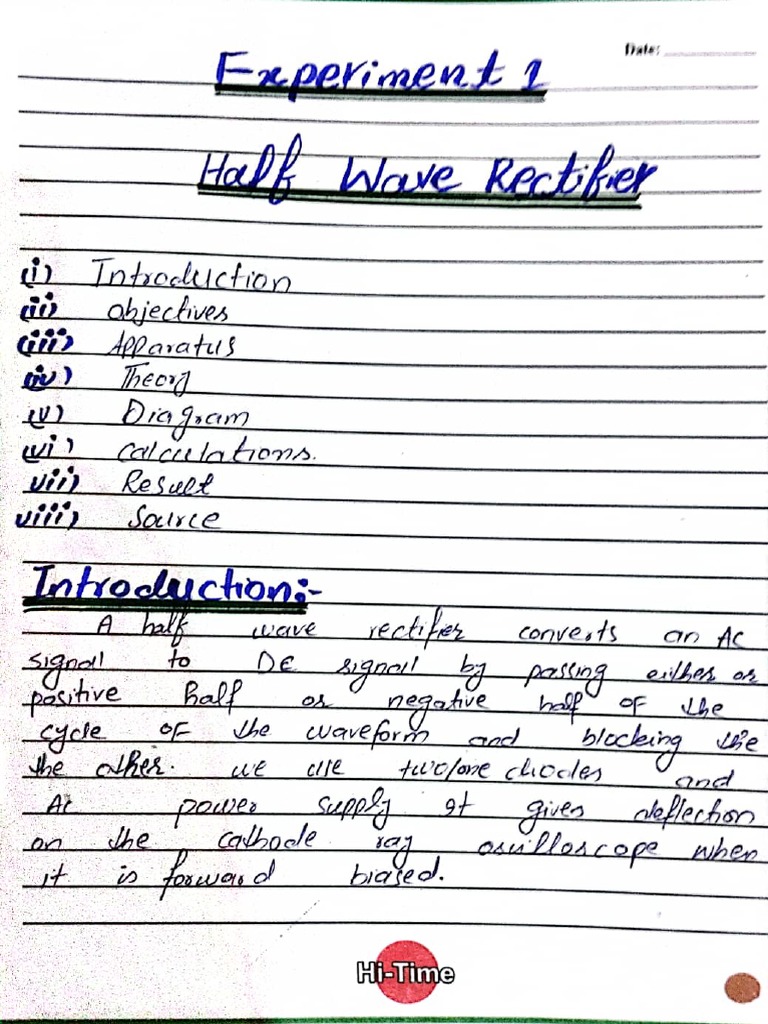 Date:
Experiment 1
Half Wave Rectifier
(i) Introduction
(ii) objectives
(iii) Apparatus
(iv) Theory
(v) Diagram
(vi) calculations.
vii) Result
viii) Source
Introduction:-
A half wave rectifier converts an AC
signal to DC signal by passing either or
positive half or negative half of the
cycle of the waveform and blocking the
the other. we use two/one diodes and
AC power supply It gives deflection
on the cathode ray oscilloscope when
it is forward biased.
Hi-Time